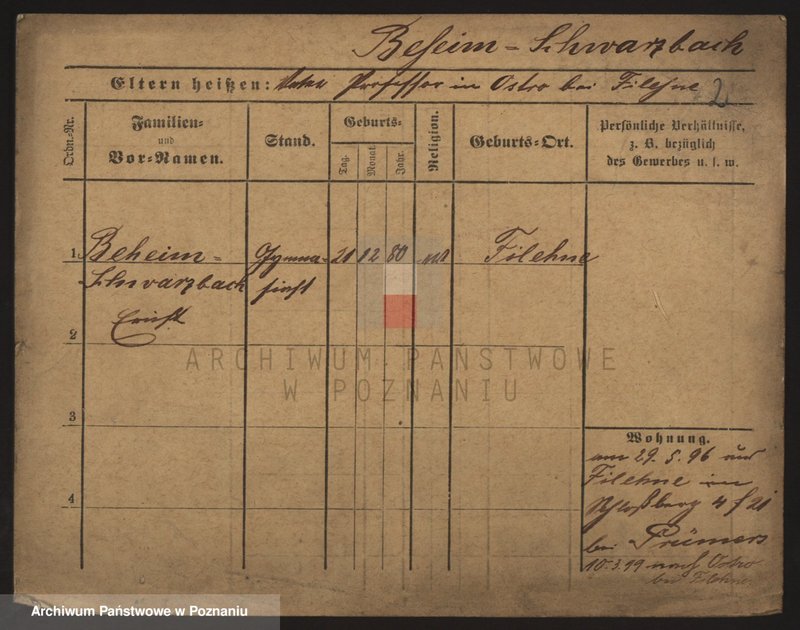 Beheim-Schwarzbach
Eltern heißen: Vater Professor in Ostro bei Filehne 2
Ordn.-Nr.
Familien- und Vor-Namen.
Stand.
Geburts-
Tag.
Monat.
Jahr.
Religion.
Geburts-Ort.
Persönliche Verhältnisse,
z. B. bezüglich
des Gewerbes u. s. w.
1 Beheim- Gymna- 21 12 80 Filehne
Schwarzbach siast
Ernst
2
ARCHIWUM PAŃSTWOWE
W POZNANIU
3
Wohnung.
am 29. 5. 96 aus
Filehne in
4 Schloßberg 4
bei Prümers
10.3.99 nach Ostro
bei Filehne.
Archiwum Państwowe w Poznaniu